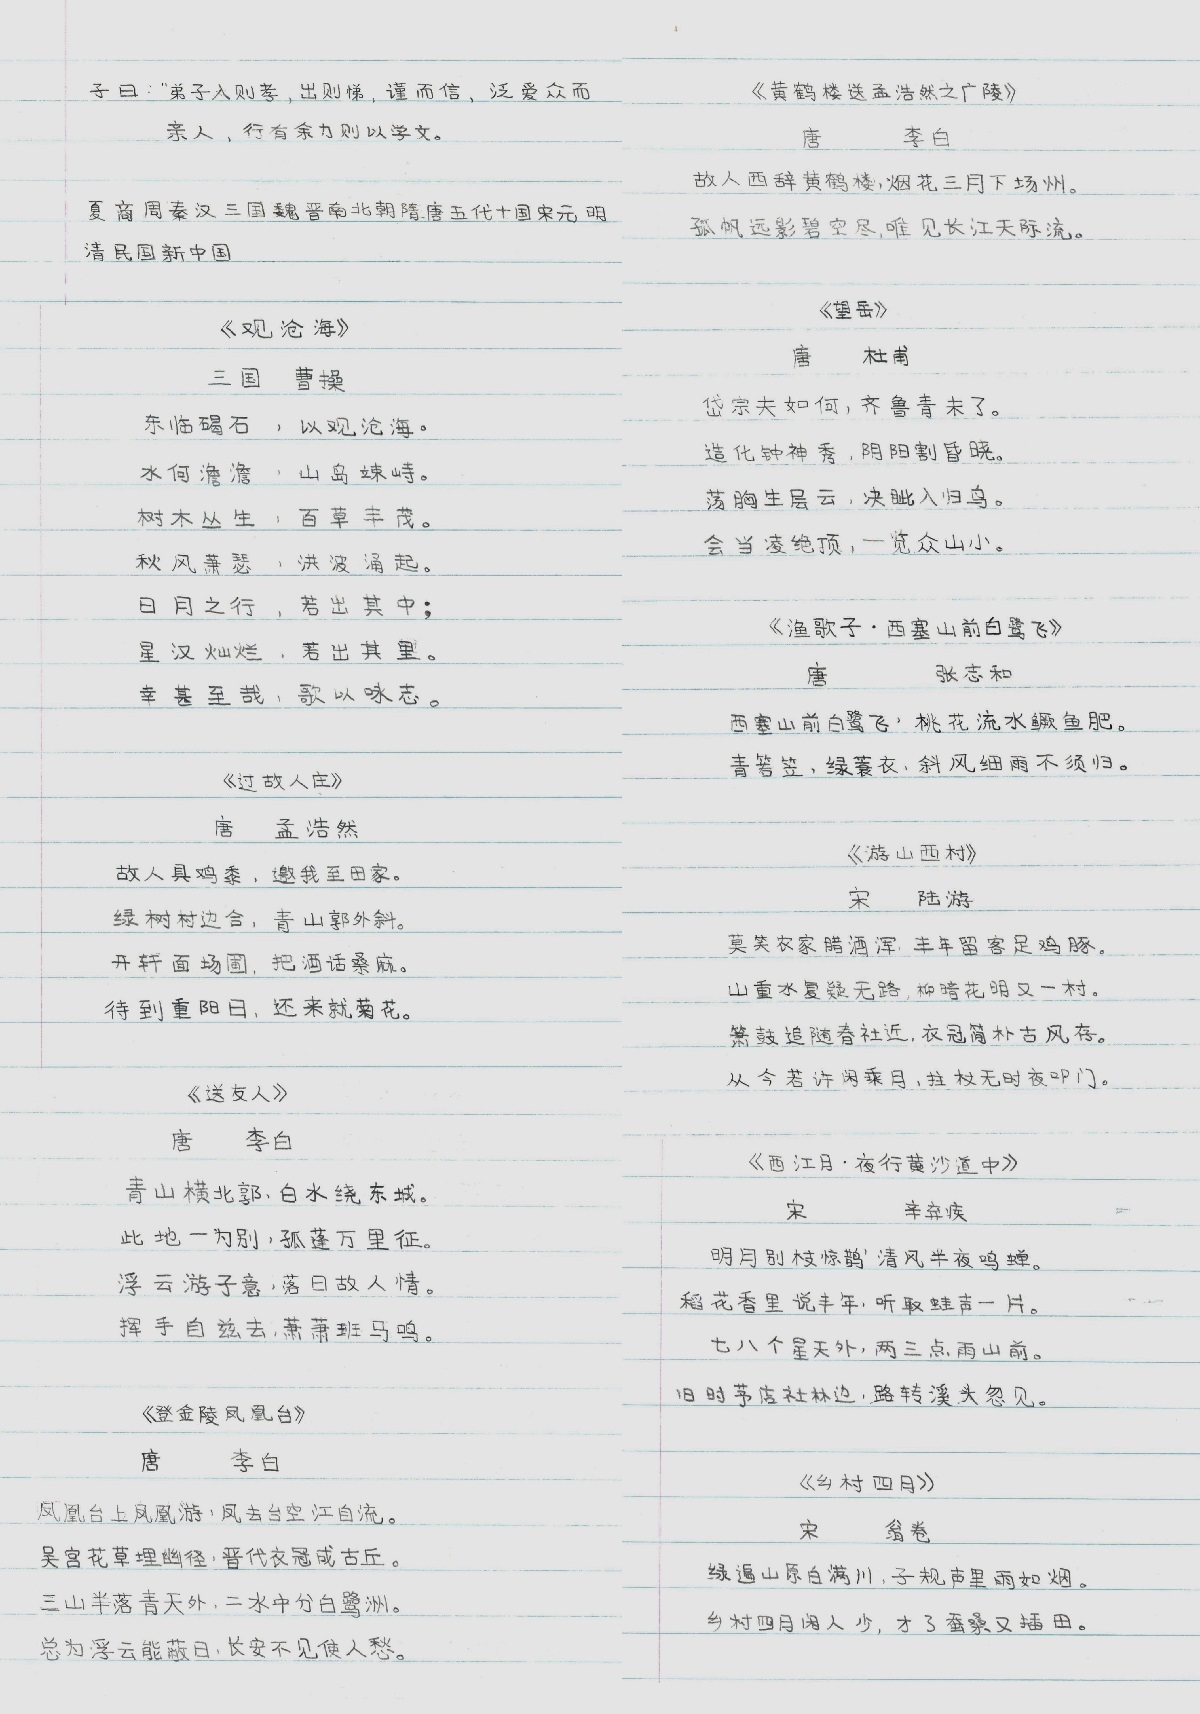 子曰：“弟子入则孝，出则悌，谨而信，泛爱众而
亲人，行有余力则以学文。
夏商周秦汉三国魏晋南北朝隋唐五代十国宋元明
清民国新中国
《观沧海》
三国 曹操
东临碣石，以观沧海。
水何澹澹，山岛竦峙。
树木丛生，百草丰茂。
秋风萧瑟，洪波涌起。
日月之行，若出其中；
星汉灿烂，若出其里。
幸甚至哉，歌以咏志。
《过故人庄》
唐 孟浩然
故人具鸡黍，邀我至田家。
绿树村边合，青山郭外斜。
开轩面场圃，把酒话桑麻。
待到重阳日，还来就菊花。
《送友人》
唐 李白
青山横北郭，白水绕东城。
此地一为别，孤蓬万里征。
浮云游子意，落日故人情。
挥手自兹去，萧萧班马鸣。
《登金陵凤凰台》
唐 李白
凤凰台上凤凰游，凤去台空江自流。
吴宫花草埋幽径，晋代衣冠成古丘。
三山半落青天外，二水中分白鹭洲。
总为浮云能蔽日，长安不见使人愁。
《黄鹤楼送孟浩然之广陵》
唐 李白
故人西辞黄鹤楼，烟花三月下场州。
孤帆远影碧空尽，唯见长江天际流。
《望岳》
唐 杜甫
岱宗夫如何，齐鲁青未了。
造化钟神秀，阴阳割昏晓。
荡胸生层云，决眦入归鸟。
会当凌绝顶，一览众山小。
《渔歌子·西塞山前白鹭飞》
唐 张志和
西塞山前白鹭飞，桃花流水鳜鱼肥。
青箬笠，绿蓑衣，斜风细雨不须归。
《游山西村》
宋 陆游
莫笑农家腊酒浑，丰年留客足鸡豚。
山重水复疑无路，柳暗花明又一村。
箫鼓追随春社近，衣冠简朴古风存。
从今若许闲乘月，拄杖无时夜叩门。
《西江月·夜行黄沙道中》
宋 辛弃疾
明月别枝惊鹊，清风半夜鸣蝉。
稻花香里说丰年，听取蛙声一片。
七八个星天外，两三点雨山前。
旧时茅店社林边，路转溪头忽见。
《乡村四月》
宋 翁卷
绿遍山原白满川，子规声里雨如烟。
乡村四月闲人少，才了蚕桑又插田。